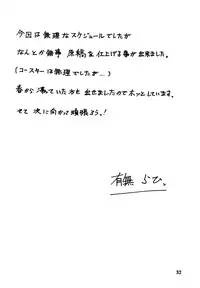 今回は無理なスケジュールでしたが
なんとか無事 原稿を仕上げる事が出来ました。
(コースターは無理でしたが…)
春から凍っていた方も出せましたのでホッとしています。
さて 次に向かって頑張ろう!
有無 らひ。
32